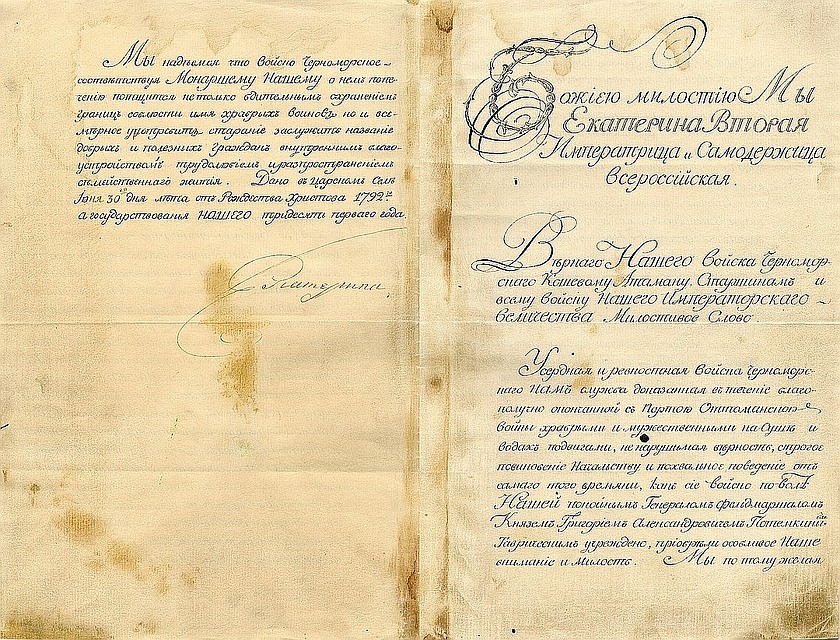 Мы надѣемся что войско Черноморское
соотвѣтствуя Монаршему Нашему о немъ попе-
ченію потщится не только бдительнымъ охраненіемъ
границъ соблюсти имя храбрыхъ воиновъ но и все-
мѣрное употребить стараніе заслужить названіе
добрыхъ и полезныхъ гражданъ внутреннимъ благо-
устройствомъ трудолюбіемъ и распространеніемъ
семейственнаго житія. Дано въ Царскомъ Селѣ
Іюня 30го дня лѣта отъ Рождества Христова 1792го
а государствованія НАШЕГО тридесять перваго года.
Екатерина
Божіею милостію Мы
Екатерина Вторая
Императрица и Самодержица
Всероссійская.
Вѣрнаго Нашего Войска Черномор-
скаго Кошевому Атаману, Старшинамъ и
всему Войску Нашего Императорскаго
величества Милостивое Слово.
Усердная и ревностная Войска Черноморс-
каго Намъ служба доказанная въ теченіе благо-
получно оконченной съ Портою Оттоманскою
войны храбрыми и мужественными на Сушѣ и
водахъ подвигами, не нарушимая вѣрность, строгое
повиновеніе Начальству и похвальное поведеніе отъ
самаго того времяни, какъ сіе войско по волѣ
Нашей покойнымъ Генераломъ фелдмаршаломъ
Княземъ Григоріемъ Александровичемъ Потемкинымъ
Таврическимъ учреждено, пріобрѣли особливое Наше
вниманіе и милость. Мы по тому желая